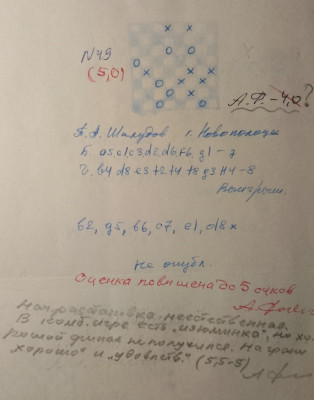 N49
(5,0)
А.Ф. – 4,0?
А. А. Шамудов г. Новополоцк
Б. a5, c1, c3, d2, d6, f6, g1 – 7
Ч. b4 d8 e3 f2 f4 f8 g3 h4 – 8
Выигрыш.
b2, g5, b6, c7, e1, d8x
Не опубл.
Оценка повышена до 5 очков
Нач. расстановка неестественная.
В комб. игре есть „изюминка", но хо-
рошой финал не получился. На грани
„хорошо" и „удовлетв." (5,5-5)